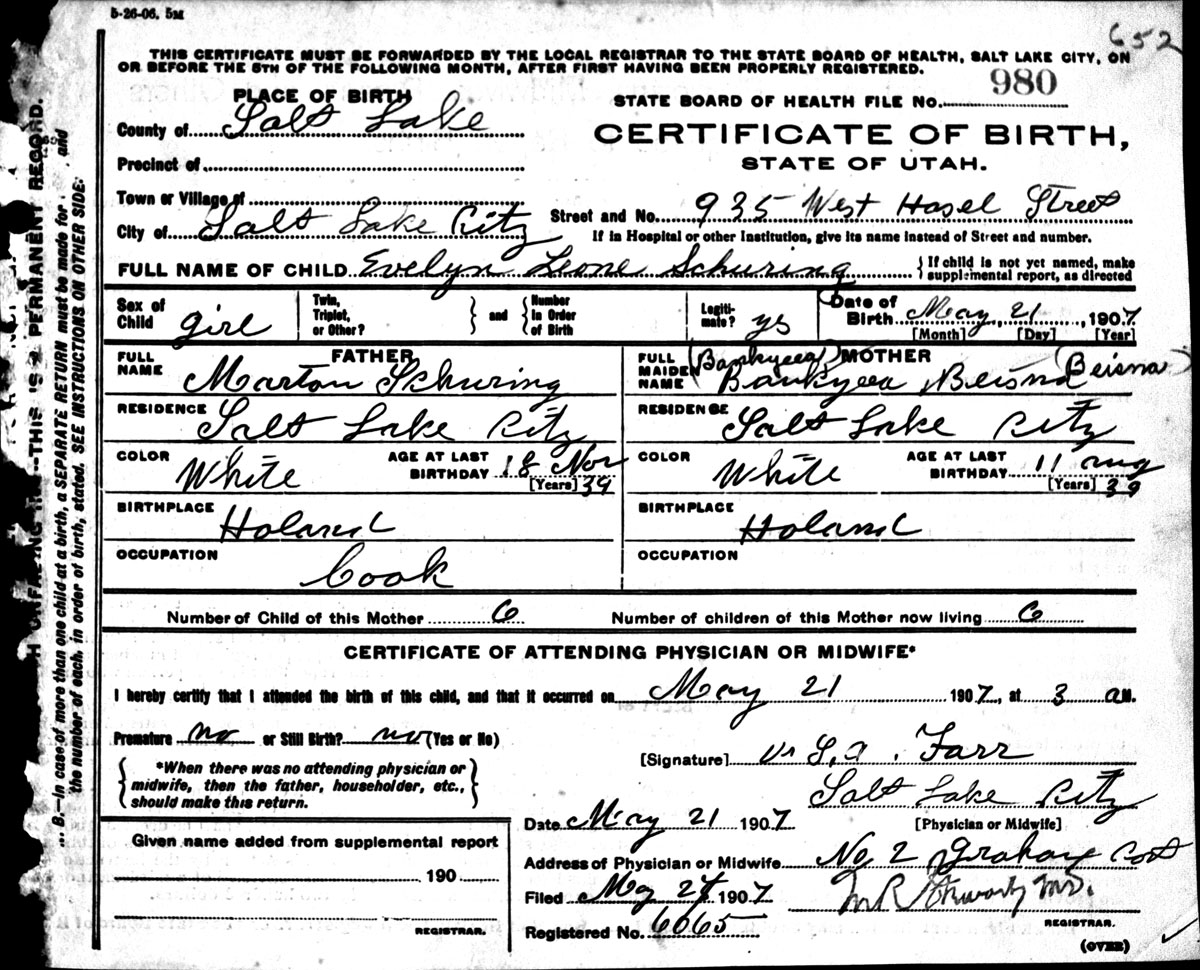 5-26-06. 5M
652
THIS CERTIFICATE MUST BE FORWARDED BY THE LOCAL REGISTRAR TO THE STATE BOARD OF HEALTH, SALT LAKE CITY, ON
OR BEFORE THE 5TH OF THE FOLLOWING MONTH, AFTER FIRST HAVING BEEN PROPERLY REGISTERED.
PLACE OF BIRTH
STATE BOARD OF HEALTH FILE NO. 980
County of Salt Lake
CERTIFICATE OF BIRTH,
STATE OF UTAH.
Precinct of
Town or Village of
City of Salt Lake City
Street and No. 935 West Hasel Street
If in Hospital or other Institution, give its name instead of Street and number.
FULL NAME OF CHILD Evelyn Leone Schuring
{If child is not yet named, make
supplemental report, as directed
Sex of
Child girl
Twin,
Triplet,
or Other?
} and {
Number
in Order
of Birth
Legiti-
mate? yes
Date of
Birth May, 21, 1907
[Month] [Day] [Year]
FATHER
FULL
NAME Marton Schuring
RESIDENCE Salt Lake City
COLOR White
AGE AT LAST
BIRTHDAY 18 Nov
[Years] 39
BIRTHPLACE
Holand
OCCUPATION
Cook
MOTHER
FULL
MAIDEN
NAME Beisma (Beisma)
RESIDENCE Salt Lake City
COLOR White
AGE AT LAST
BIRTHDAY 11 aug
[Years] 39
BIRTHPLACE
Holand
OCCUPATION
Number of Child of this Mother 6
Number of children of this Mother now living 6
CERTIFICATE OF ATTENDING PHYSICIAN OR MIDWIFE*
I hereby certify that I attended the birth of this child, and that it occurred on May 21 1907, at 3 a M.
Premature no or Still Birth? no (Yes or No)
*When there was no attending physician or
midwife, then the father, householder, etc.,
should make this return.
[Signature] Farr
Salt Lake City
[Physician or Midwife]
Date May 21 1907
Address of Physician or Midwife No 2
Filed May 27 1907
REGISTRAR.
Registered No. 6065
(OVER)
Given name added from supplemental report
190
REGISTRAR.
THIS IS A PERMANENT RECORD.
B.—In case of more than one child at a birth, a SEPARATE RETURN must be made for and
the number of each, in order of birth, stated. SEE INSTRUCTIONS ON OTHER SIDE.